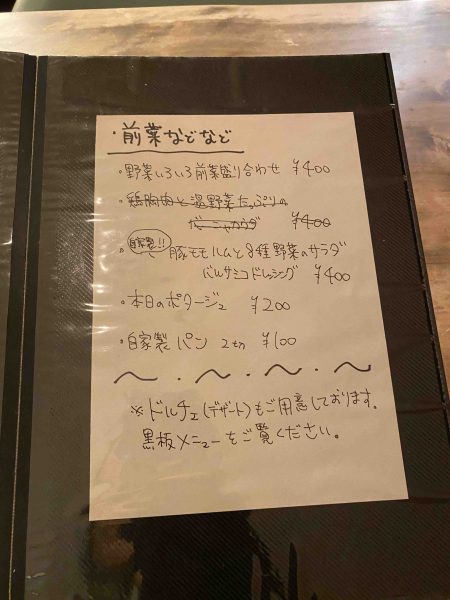 ・前菜などなど
・野菜いろいろ前菜盛り合わせ ¥400
・鶏胸肉と温野菜たっぷりの
バーニャカウダ ¥400
・自家製!! 豚モモハムと8種野菜のサラダ
バルサミコドレッシング ¥400
・本日のポタージュ ¥200
・自家製パン 2切 ¥100
〜・〜・〜・〜
※ドルチェ(デザート)もご用意しております。
黒板メニューをご覧ください。